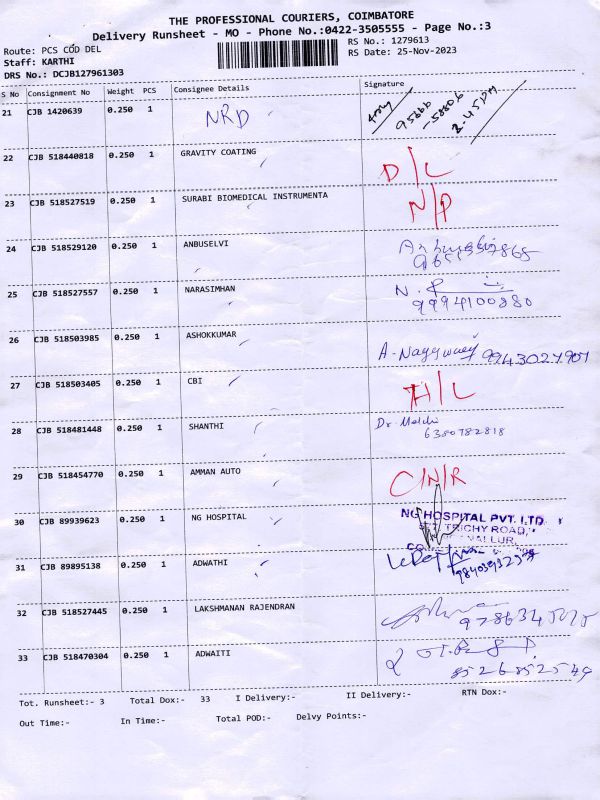 THE PROFESSIONAL COURIERS, COIMBATORE
Delivery Runsheet - MO - Phone No.:0422-3505555 - Page No.:3
Route: PCS COD DEL
RS No.: 1279613
Staff: KARTHI
RS Date: 25-Nov-2023
DRS No.: DCJB127961303
S No Consignment No Weight PCS Consignee Details Signature
21 CJB 1420639 0.250 1 NRD 95666 -58806 2-45pm
22 CJB 518440818 0.250 1 GRAVITY COATING D/L
23 CJB 518527519 0.250 1 SURABI BIOMEDICAL INSTRUMENTA N/P
24 CJB 518529120 0.250 1 ANBUSELVI
25 CJB 518527557 0.250 1 NARASIMHAN N. 9994100880
26 CJB 518503985 0.250 1 ASHOKKUMAR A-
27 CJB 518503405 0.250 1 CBI H/L
28 CJB 518481448 0.250 1 SHANTHI Dr. 6380782818
29 CJB 518454770 0.250 1 AMMAN AUTO C/N/R
30 CJB 89939623 0.250 1 NG HOSPITAL NG HOSPITAL PVT. LTD
TRICHY ROAD,
31 CJB 89895138 0.250 1 ADWATHI
32 CJB 518527445 0.250 1 LAKSHMANAN RAJENDRAN
33 CJB 518470304 0.250 1 ADWAITI 8526852549
Tot. Runsheet:- 3 Total Dox:- 33 I Delivery:- II Delivery:- RTN Dox:-
Out Time:- In Time:- Total POD:- Delvy Points:-